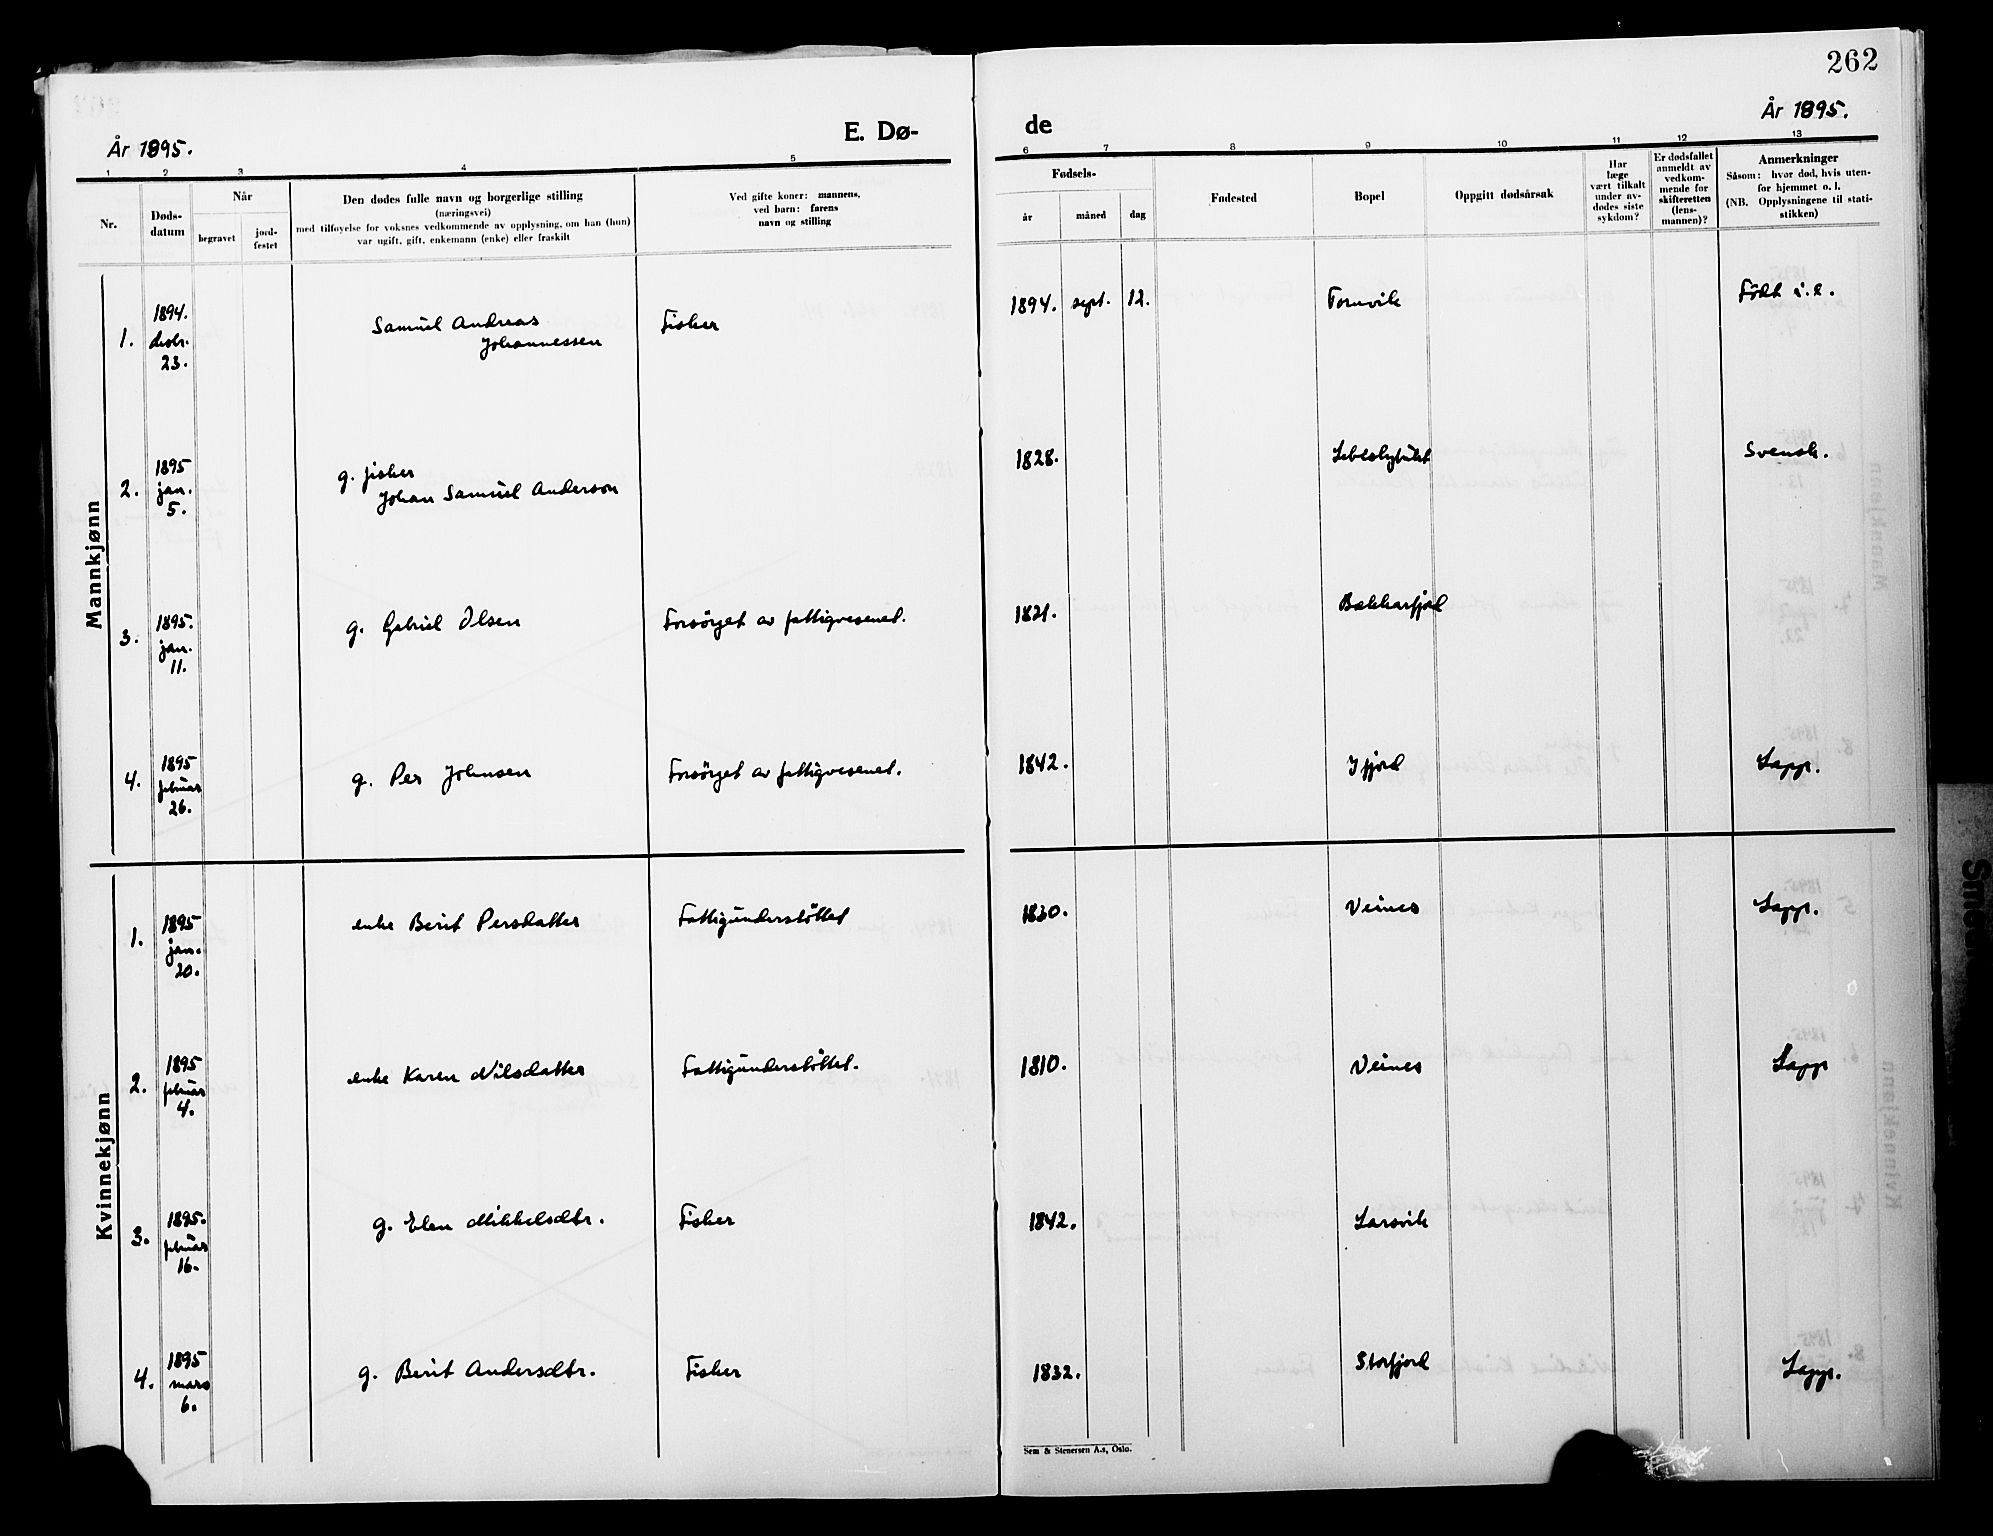 262
År 1895.
E. Dø-
de
År 1895.
1 2 3 4 5 6 7 8 9 10 11 12 13
Nr.
Døds-
datum
Når
begravet
jord-
festet
Den dødes fulle navn og borgerlige stilling
(næringsvei)
med tilføyelse for voksnes vedkommende av opplysning, om han (hun)
var ugift, gift, enkemann (enke) eller fraskilt
Ved gifte koner: mannens,
ved barn: farens
navn og stilling
Fødsels-
år
måned
dag
Fødested
Bopel
Oppgitt dødsårsak
Har
læge
vært tilkalt
under av-
dødes siste
sykdom?
Er dødsfallet
anmeldt av
vedkom-
mende for
skifteretten
(lens-
mannen)?
Anmerkninger
Såsom: hvor død, hvis uten-
for hjemmet o. l.
(NB. Opplysningene til stati-
stikken)
Mannkjønn
1.
1894.
desbr.
23.
Samuel Andreas
Johannessen
Fisker
1894. sept. 12.
Tornvik
Født i.e.
2.
1895
jan.
5.
g. fisker
Johan Samuel Anderson
1828.
Lebesbybukt
Svensk.
3.
1895.
jan.
11.
g. Gabriel Olsen
Forsörget av fattigvesenet.
1821.
Bekkarfjord
4.
1895
februar
26.
g. Per Johnsen
Forsörget av fattigvesenet.
1842.
Ifjord
Lapp.
Kvinnekjønn
1.
1895
jan.
20.
enke Berit Persdatter
Fattigunderstöttet
1830.
Veines
Lapp.
2.
1895
februar
4.
enke Karen Nilsdatter
Fattigunderstöttet.
1810.
Veines
Lapp
3.
1895.
februar
16.
g. Elen Mikkelsdtr.
Fisker
1842.
Larsvik
4.
1895
mars
6.
g. Berit Andersdtr.
Fisker
1832.
Storfjord
Lapp.
Sem & Stenersen A.s, Oslo.